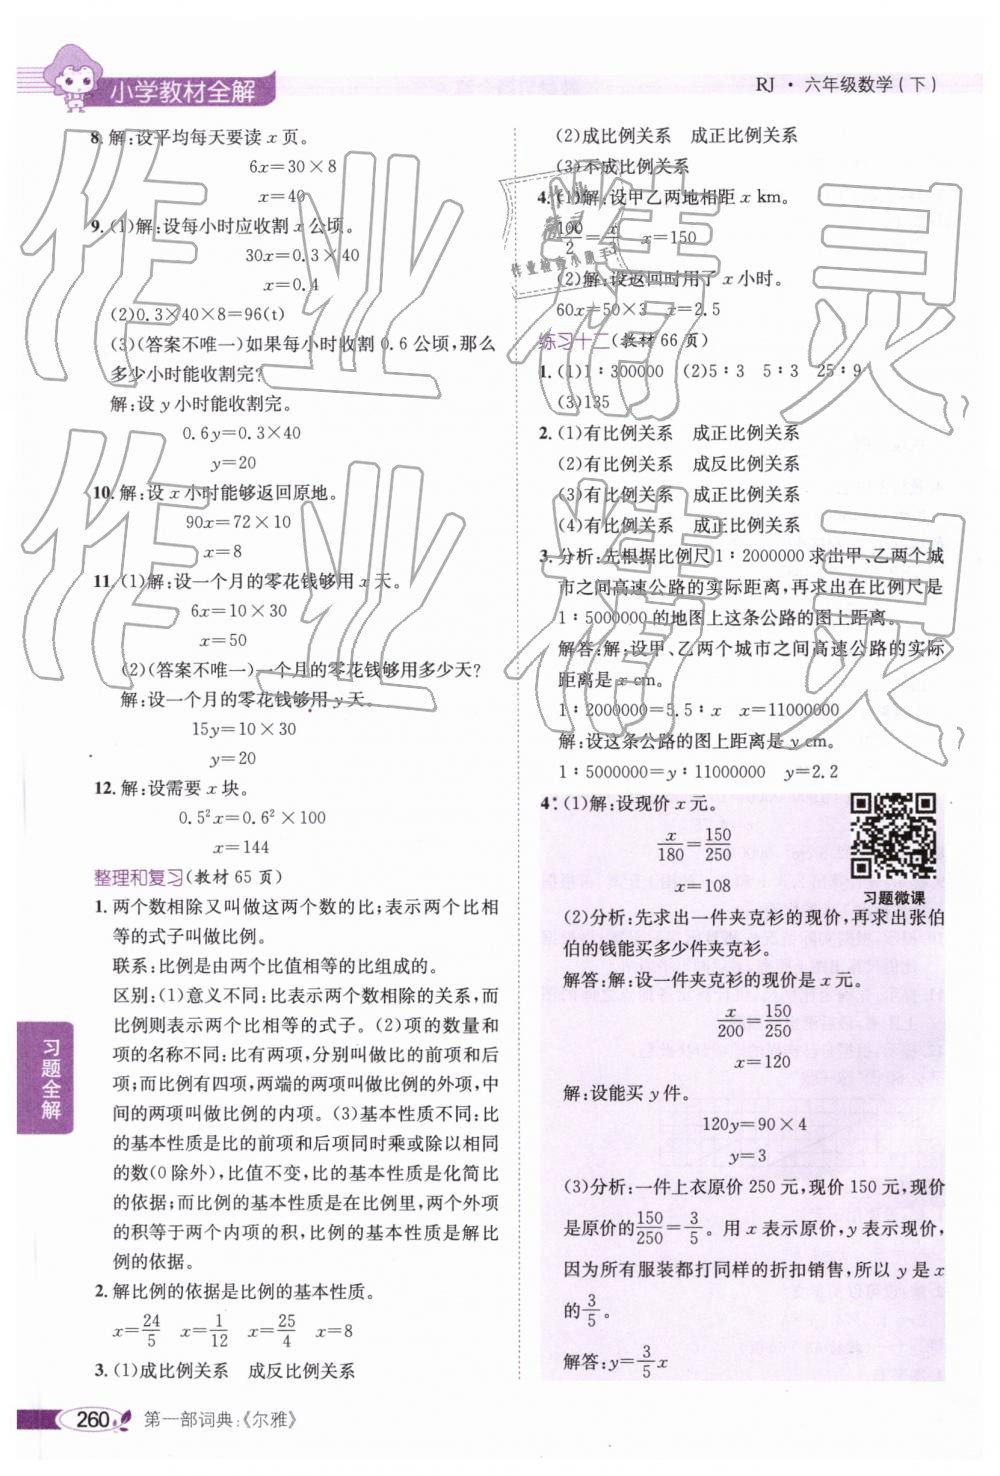 小学教材全解
RJ · 六年级数学(下)
8. 解:设平均每天要读 x 页。
6x=30×8
x=40
9. (1)解:设每小时应收割 x 公顷。
30x=0.3×40
x=0.4
(2)0.3×40×8=96(t)
(3)(答案不唯一)如果每小时收割 0.6 公顷,那么
多少小时能收割完?
解:设 y 小时能收割完。
0.6y=0.3×40
y=20
10. 解:设 x 小时能够返回原地。
90x=72×10
x=8
11. (1)解:设一个月的零花钱够用 x 天。
6x=10×30
x=50
(2)(答案不唯一)一个月的零花钱够用多少天?
解:设一个月的零花钱够用 y 天。
15y=10×30
y=20
12. 解:设需要 x 块。
0.5²x=0.6²×100
x=144
整理和复习(教材 65 页)
1. 两个数相除又叫做这两个数的比;表示两个比相
等的式子叫做比例。
联系:比例是由两个比值相等的比组成的。
区别:(1)意义不同:比表示两个数相除的关系,而
比例则表示两个比相等的式子。(2)项的数量和
项的名称不同:比有两项,分别叫做比的前项和后
项;而比例有四项,两端的两项叫做比例的外项,中
间的两项叫做比例的内项。(3)基本性质不同:比
的基本性质是比的前项和后项同时乘或除以相同
的数(0 除外),比值不变,比的基本性质是化简比
的依据;而比例的基本性质是在比例里,两个外项
的积等于两个内项的积,比例的基本性质是解比
例的依据。
2. 解比例的依据是比例的基本性质。
x=24/5 x=1/12 x=25/4 x=8
3. (1)成比例关系 成反比例关系
(2)成比例关系 成正比例关系
(3)不成比例关系
4. (1)解:设甲乙两地相距 x km。
100/2=x/3 x=150
(2)解:设返回时用了 x 小时。
60x=50×3 x=2.5
练习十二(教材 66 页)
1. (1)1∶300000 (2)5∶3 5∶3 25∶9
(3)135
2. (1)有比例关系 成正比例关系
(2)有比例关系 成反比例关系
(3)有比例关系 成正比例关系
(4)有比例关系 成正比例关系
3. 分析:先根据比例尺 1∶2000000 求出甲、乙两个城
市之间高速公路的实际距离,再求出在比例尺是
1∶5000000 的地图上这条公路的图上距离。
解答:解:设甲、乙两个城市之间高速公路的实际
距离是 x cm。
1∶2000000=5.5∶x x=11000000
解:设这条公路的图上距离是 y cm。
1∶5000000=y∶11000000 y=2.2
4. (1)解:设现价 x 元。
x/180=150/250
x=108
习题微课
(2)分析:先求出一件夹克衫的现价,再求出张伯
伯的钱能买多少件夹克衫。
解答:解:设一件夹克衫的现价是 x 元。
x/200=150/250
x=120
解:设能买 y 件。
120y=90×4
y=3
(3)分析:一件上衣原价 250 元,现价 150 元,现价
是原价的150/250=3/5。用 x 表示原价,y 表示现价,
因为所有服装都打同样的折扣销售,所以 y 是 x
的3/5。
解答:y=3/5x
习题全解
260 第一部词典:《尔雅》
作业精灵
作业精灵
作业检查小助手